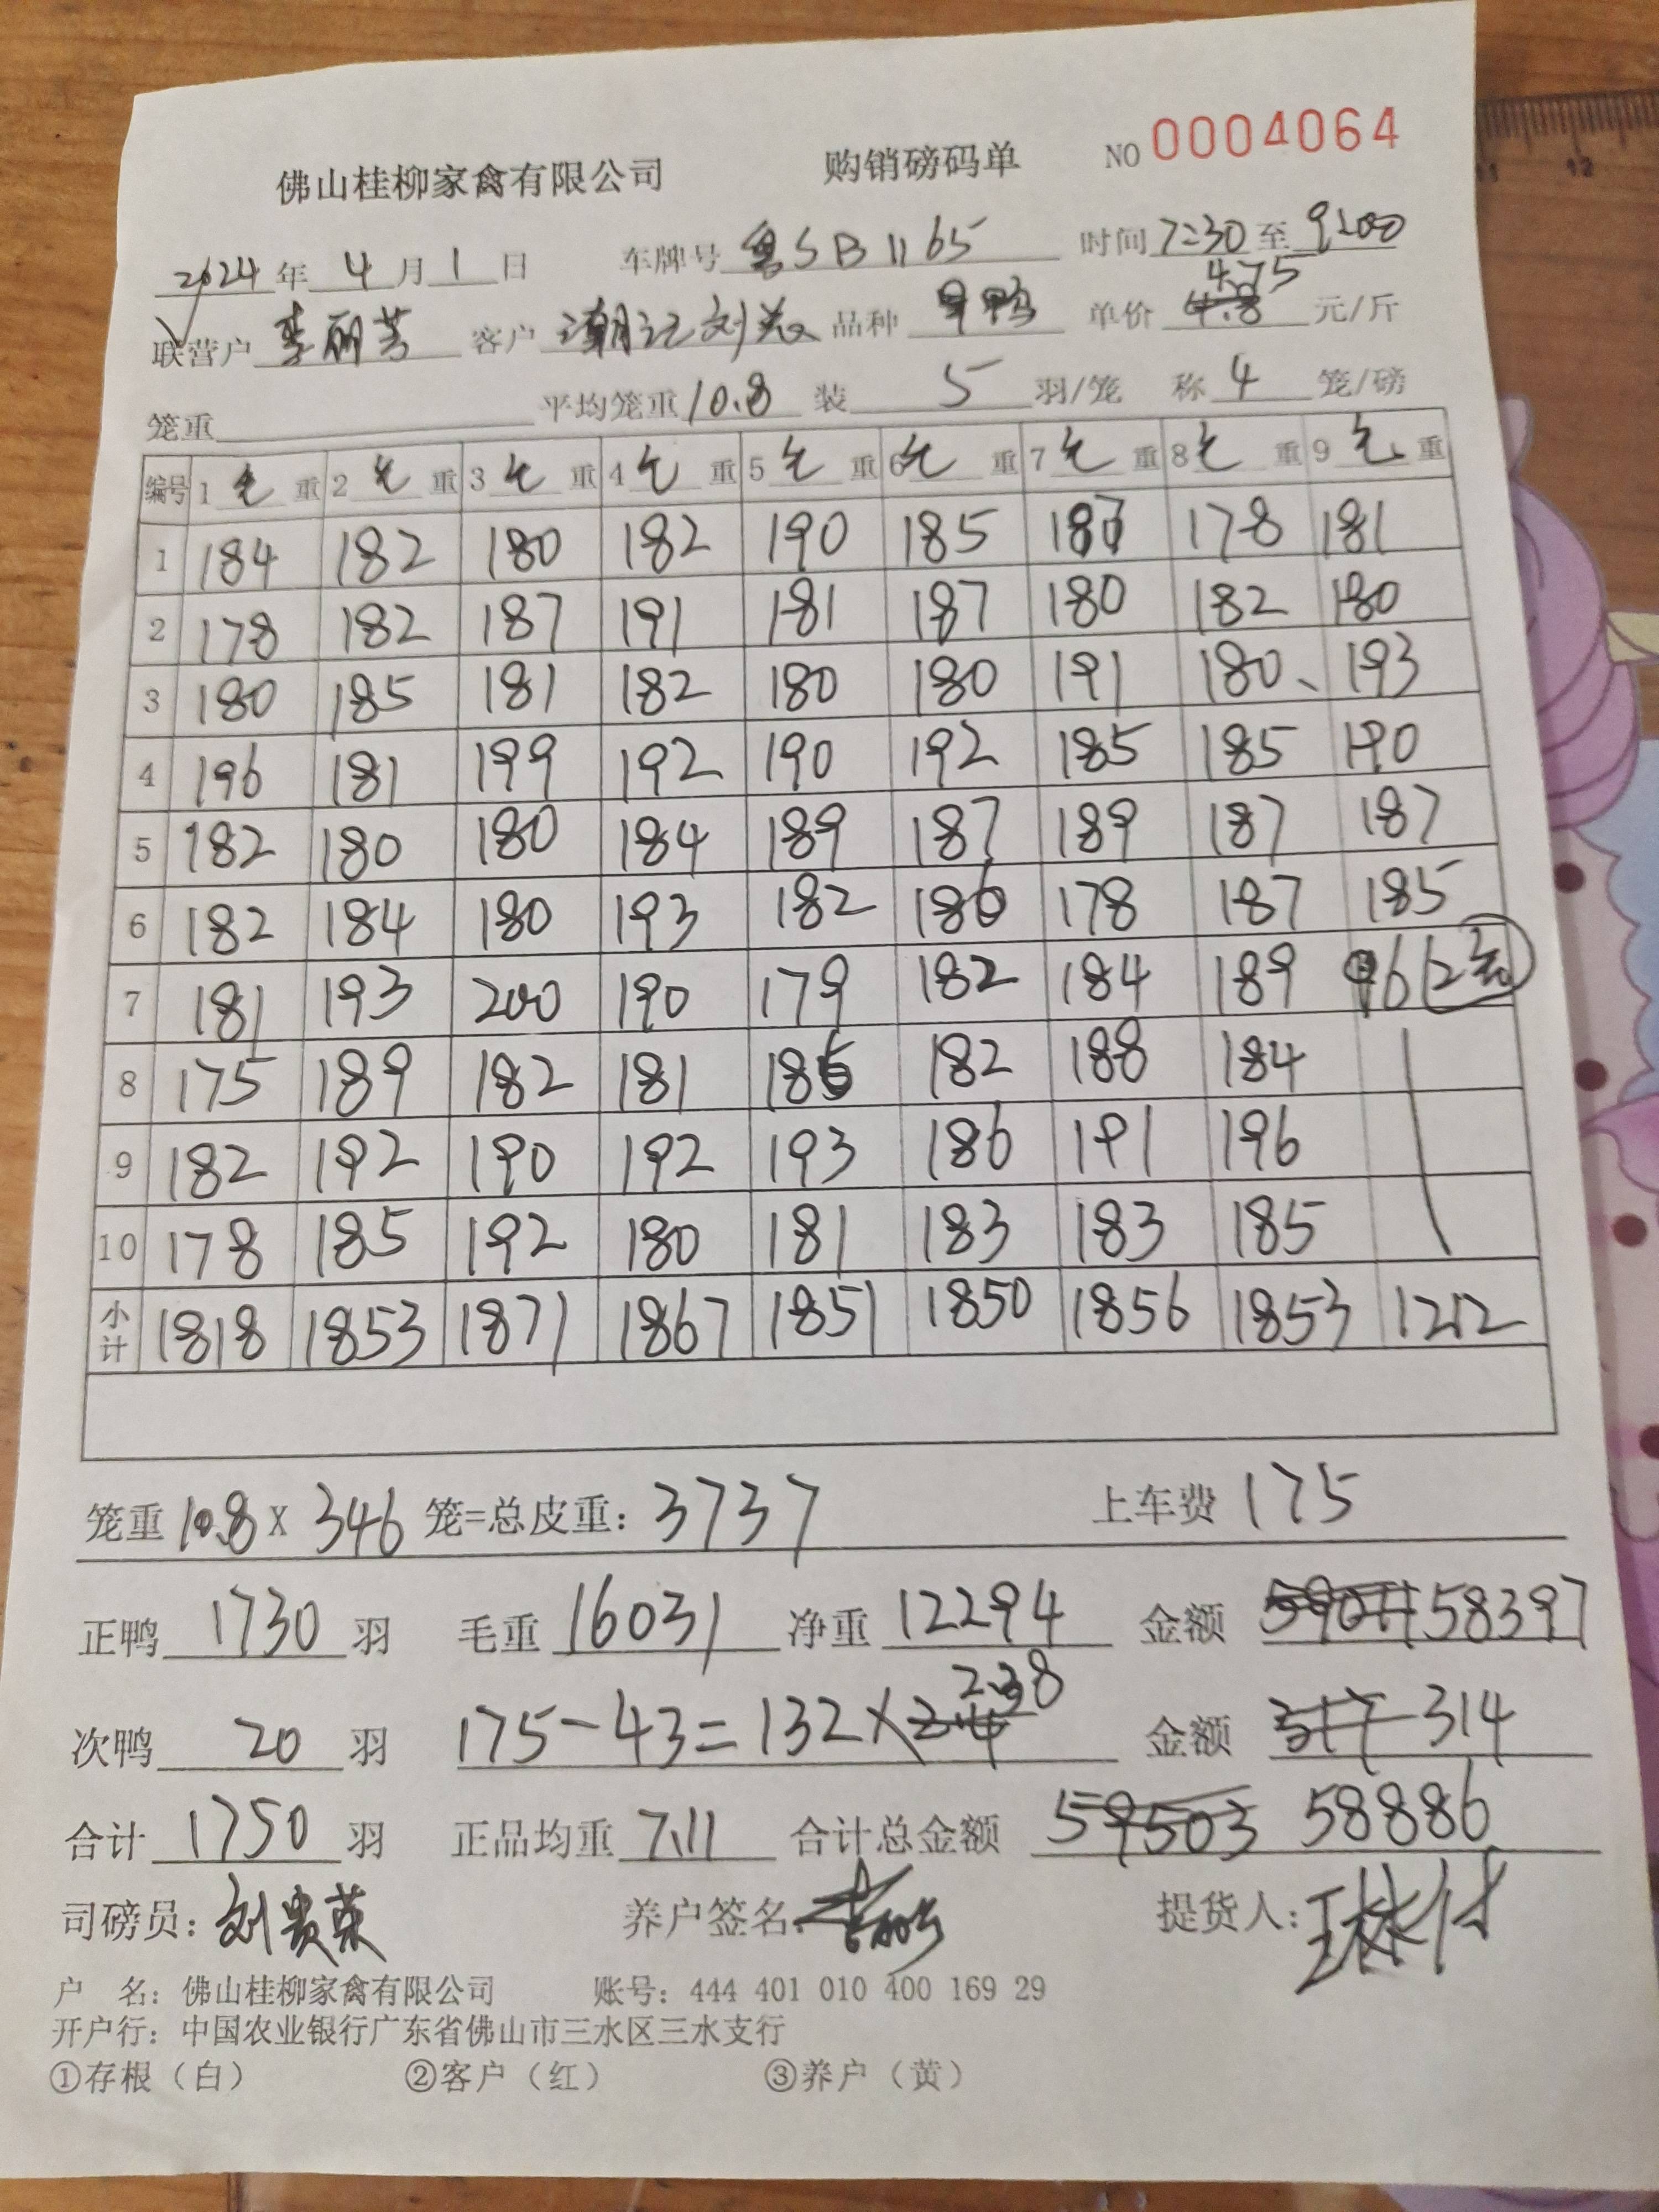 佛山桂柳家禽有限公司 购销磅码单 NO 0004064
2024 年 4 月 1 日 车牌号 粤SB1165 时间 7:30 至 9:00
4.75
联营户 李丽芳 客户 潮记刘 品种 鸭 单价 4.8 元/斤
笼重 平均笼重 10.8 装 5 羽/笼 称 4 笼/磅
编号 1 毛 重 2 毛 重 3 毛 重 4 毛 重 5 毛 重 6 毛 重 7 毛 重 8 毛 重 9 毛 重
1 184 182 180 182 190 185 187 178 181
2 178 182 187 191 181 187 180 182 180
3 180 185 181 182 180 180 191 180、 193
4 196 181 199 192 190 192 185 185 190
5 182 180 180 184 189 187 189 187 187
6 182 184 180 193 182 186 178 187 185
7 181 193 200 190 179 182 184 189 96 (2笼)
8 175 189 182 181 186 182 188 184
9 182 192 190 192 193 186 191 196
10 178 185 192 180 181 183 183 185
小计 1818 1853 1871 1867 1851 1850 1856 1853 1212
笼重 10.8 X 346 笼=总皮重: 3737 上车费 175
正鸭 1730 羽 毛重 16031 净重 12294 金额 58397
2.38
次鸭 20 羽 175-43=132×2.4 金额 317 314
合计 1750 羽 正品均重 7.11 合计总金额 59503 58886
司磅员: 刘贵荣 养户签名: 提货人:
户 名: 佛山桂柳家禽有限公司 账号: 444 401 010 400 169 29
开户行: 中国农业银行广东省佛山市三水区三水支行
①存根（白） ②客户（红） ③养户（黄）